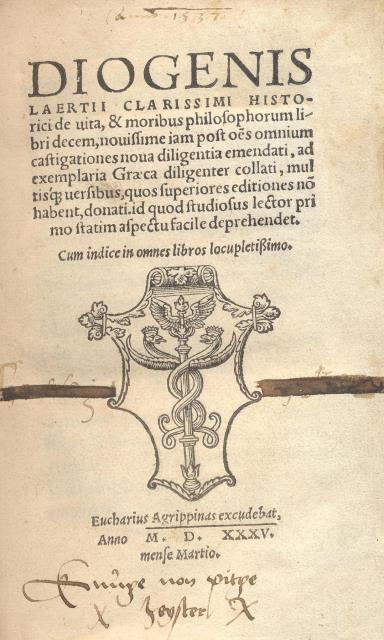 Anno 1537
DIOGENIS
LAERTII CLARISSIMI HISTO-
rici de uita, & moribus philosophorum li-
bri decem, nouissime iam post oẽs omnium
castigationes noua diligentia emendati, ad
exemplaria Græca diligenter collati, mul
tisq́; uersibus, quos superiores editiones nõ
habent, donati. id quod studiosus lector pri
mo statim aspectu facile deprehendet.
Cum indice in omnes libros locupletißimo.
Eucharius Agrippinas excudebat,
Anno M. D. XXXV.
mense Martio.
non